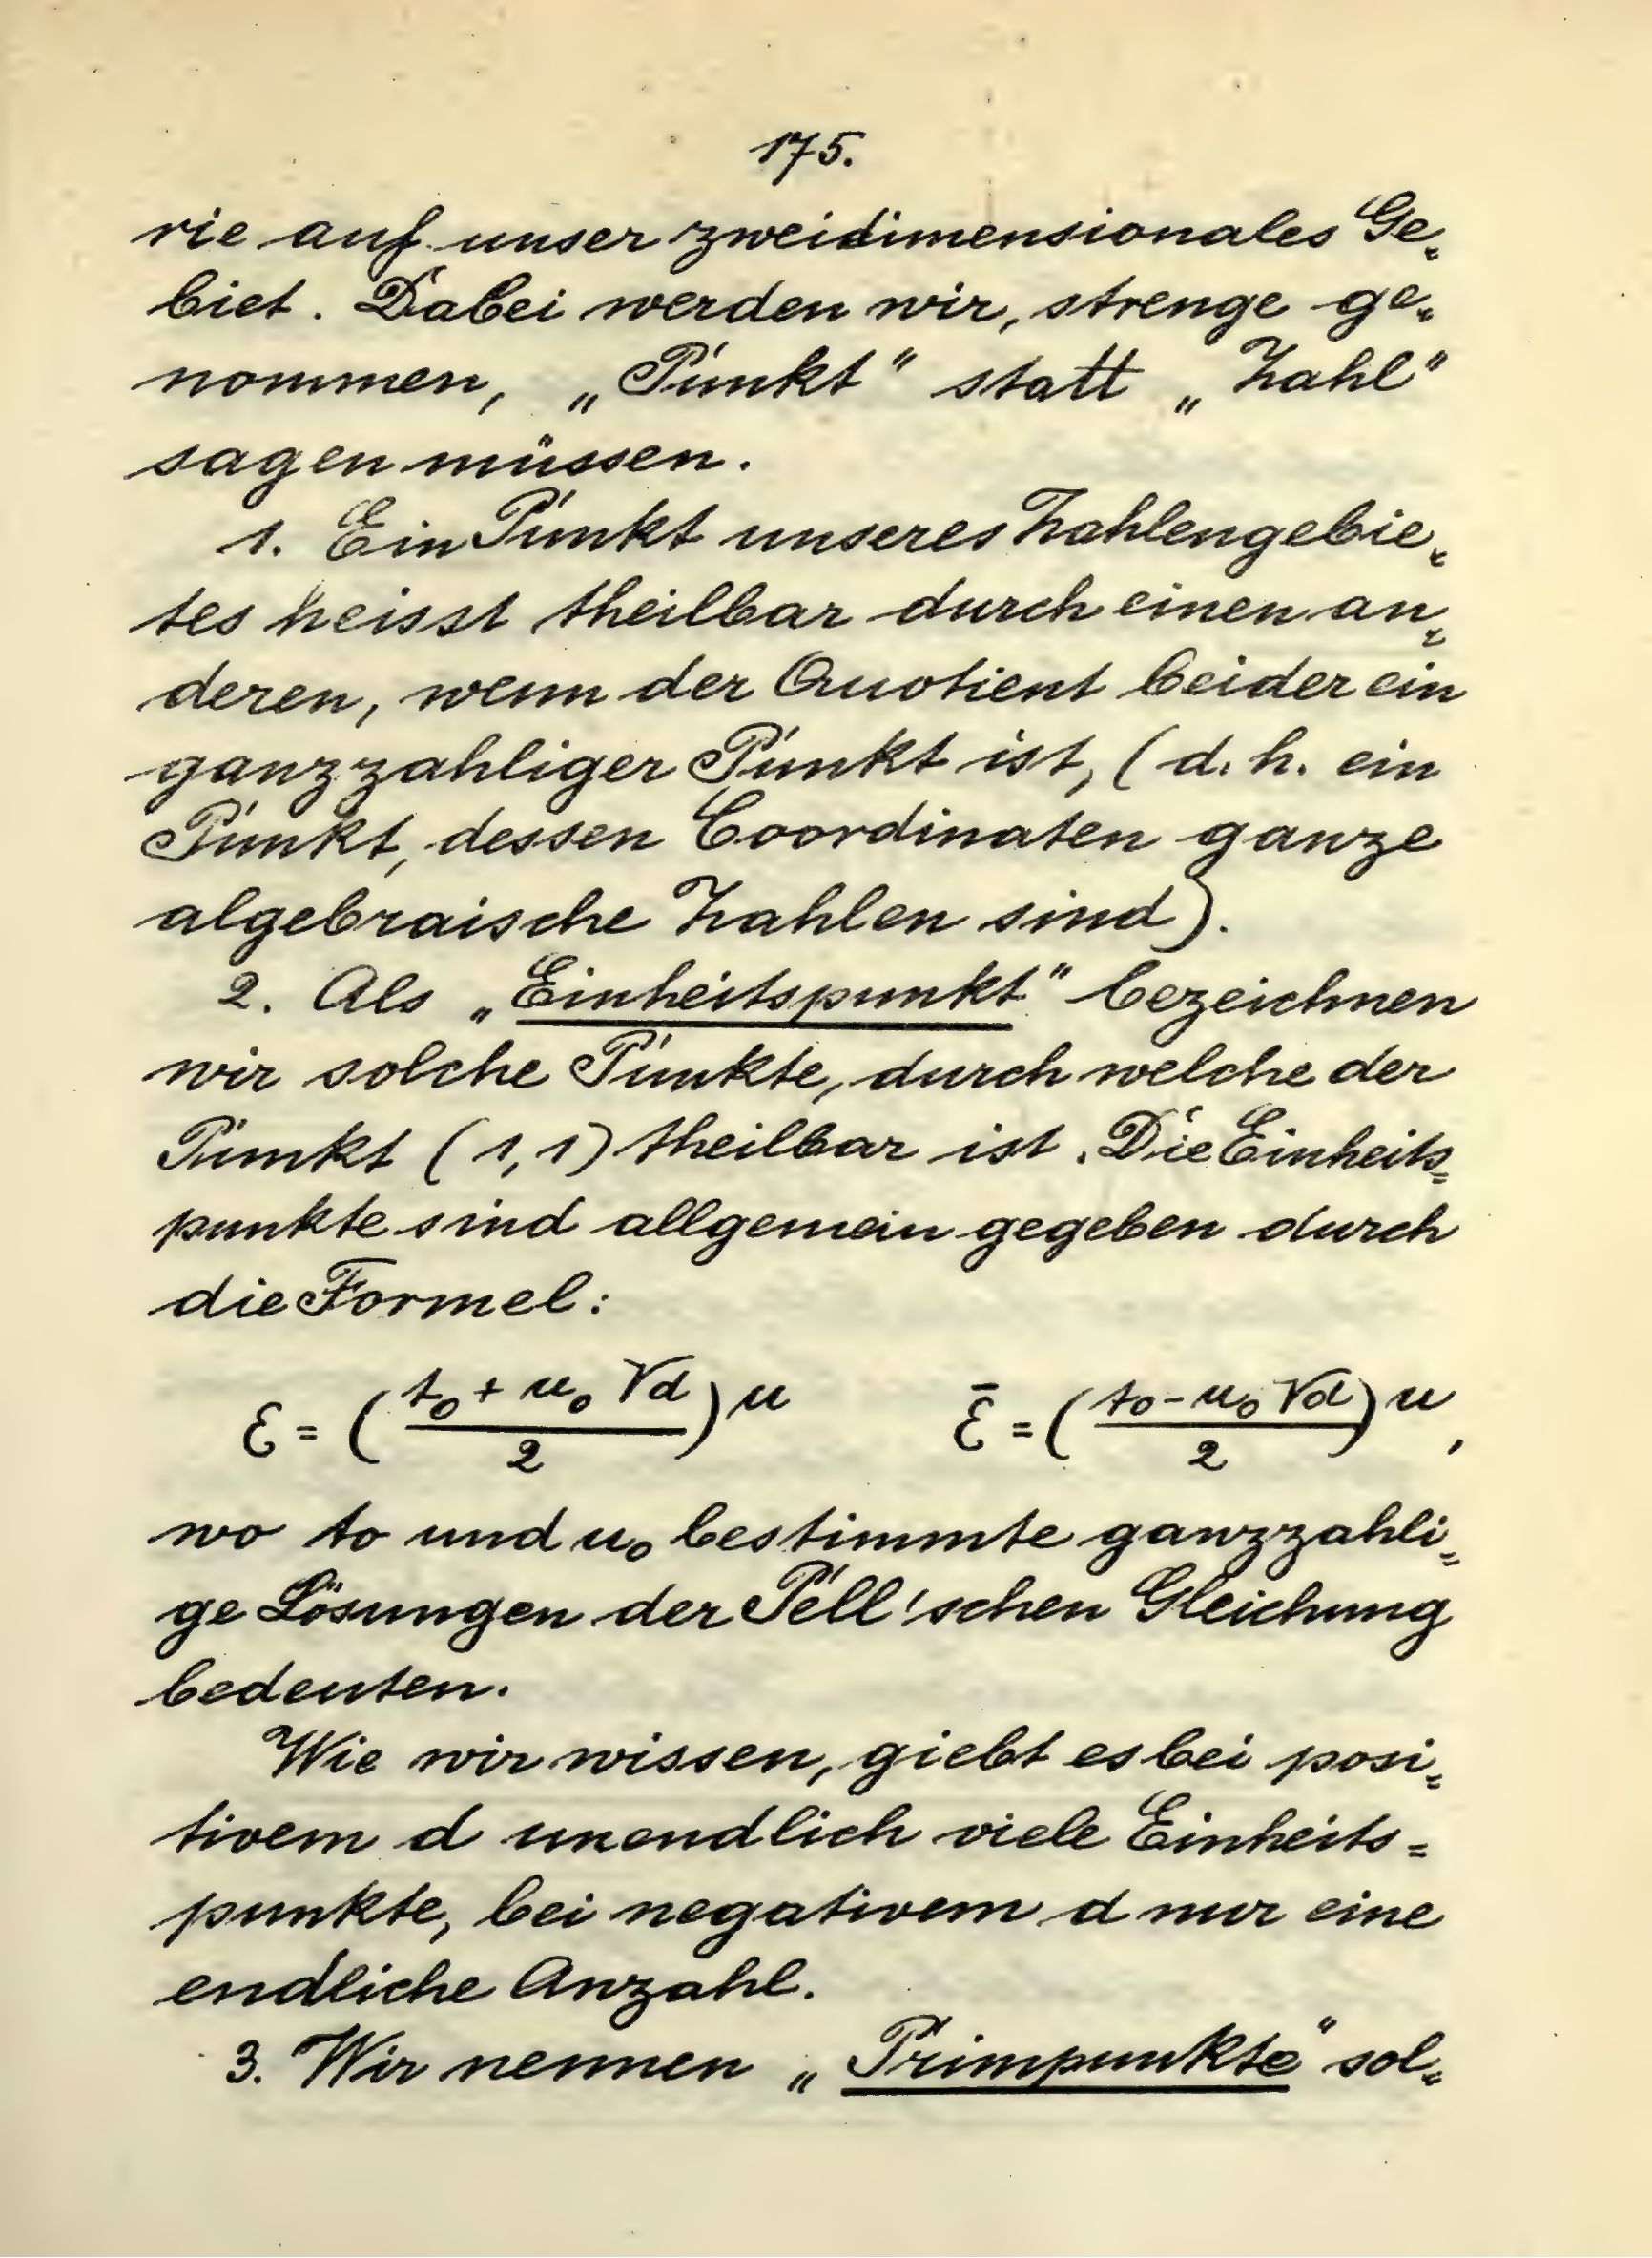 175.
rie auf unser zweidimensionales Ge-
biet. Dabei werden wir, strenge ge-
nommen, „Punkt“ statt „Zahl“
sagen müssen.
1. Ein Punkt unseres Zahlengebie-
tes heisst theilbar durch einen an-
deren, wenn der Quotient beider ein
ganzzahliger Punkt ist, (d. h. ein
Punkt, dessen Coordinaten ganze
algebraische Zahlen sind).
2. Als „Einheitspunkt“ bezeichnen
wir solche Punkte, durch welche der
Punkt (1,1) theilbar ist. Die Einheits-
punkte sind allgemein gegeben durch
die Formel:
ε = ((t₀ + u₀ √d)/2)^u   ε̄ = ((t₀ - u₀ √d)/2)^u,
wo t₀ und u₀ bestimmte ganzzahli-
ge Lösungen der Pell'schen Gleichung
bedeuten.
Wie wir wissen, giebt es bei posi-
tivem d unendlich viele Einheits=
punkte, bei negativem d nur eine
endliche Anzahl.
3. Wir nennen „Primpunkte“ sol-